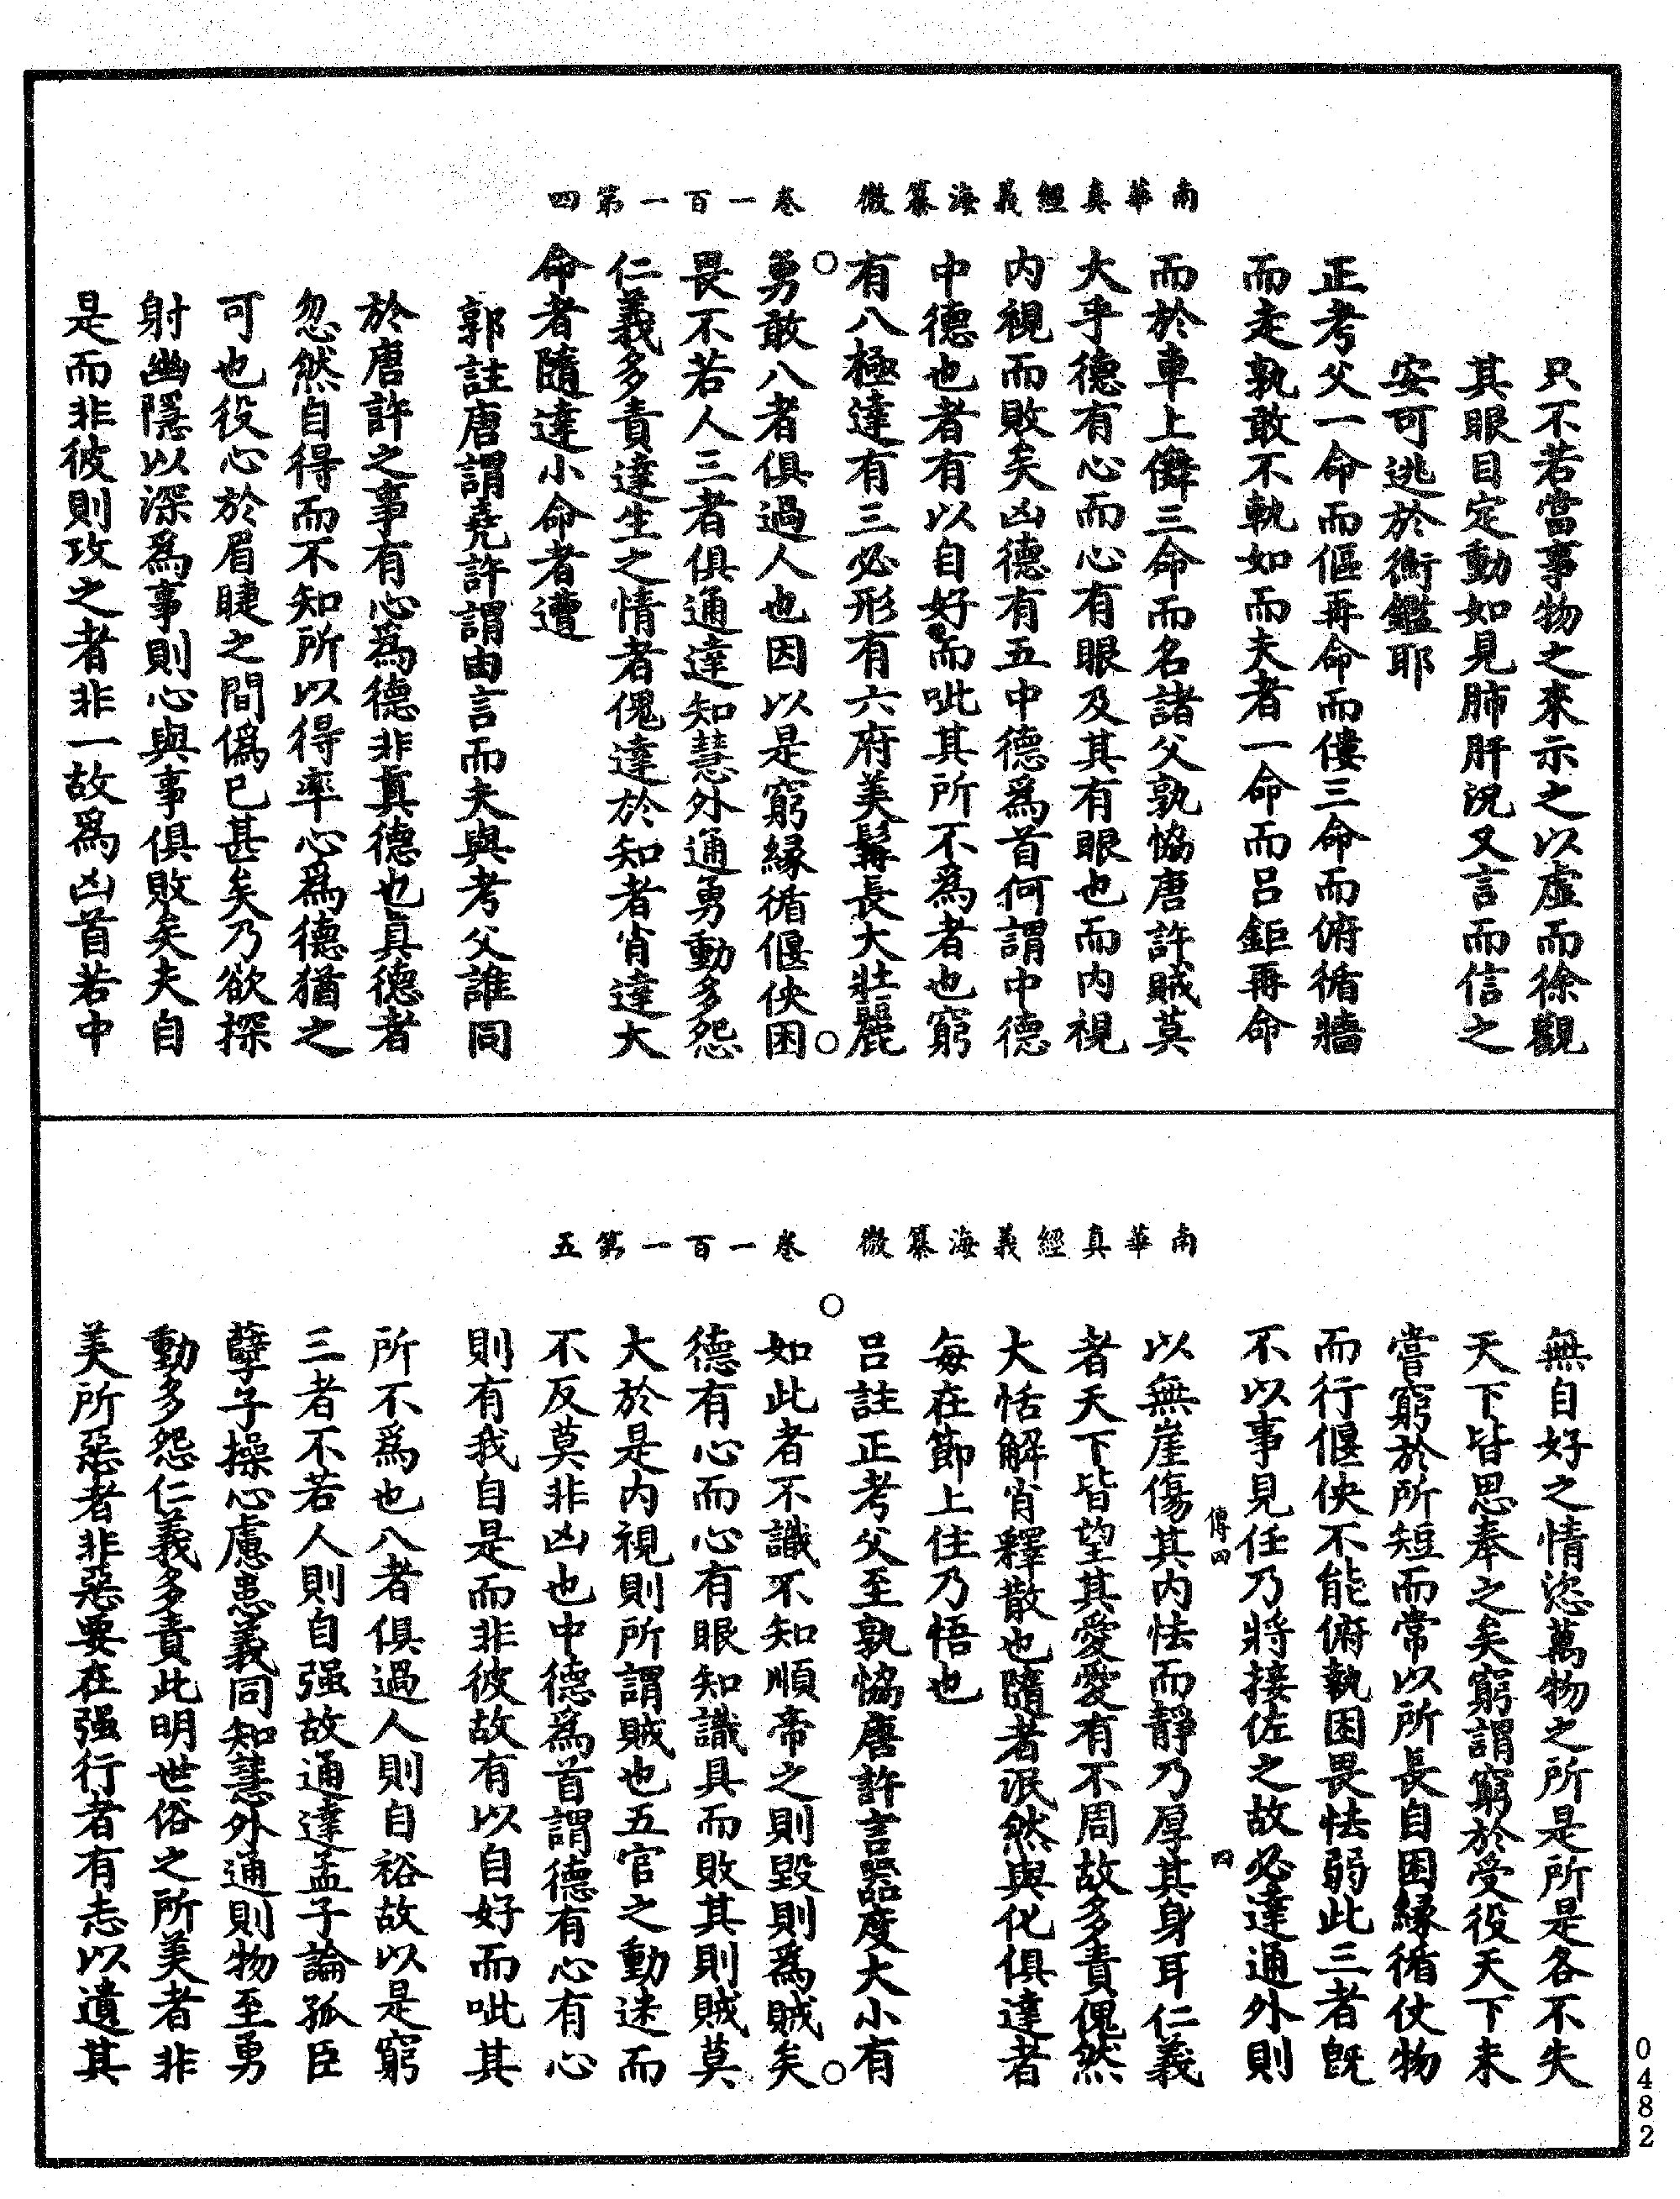 南華真經義海纂微　卷一百一第四
只不若當事物之來示之以虛而徐觀
其眼目定動如見肺肝況又言而信之
安可逃於衡鑑耶
正考父一命而傴再命而僂三命而俯循牆
而走孰敢不軌如而夫者一命而呂鉅再命
而於車上儛三命而名諸父孰恊唐許賊莫
大乎德有心而心有眼及其有眼也而内視
内視而敗矣凶德有五中德爲首何謂中德
中德也者有以自好而吡其所不爲者也窮
有八極達有三必形有六府美髯長大壯麗
勇敢八者俱過人也因以是窮緣循偃佒困
畏不若人三者俱通達知慧外通勇動多怨
仁義多責達生之情者傀達於知者肖達大
命者隨達小命者遭
郭註唐謂堯許謂由言而夫與考父誰同
於唐許之事有心爲德非真德也真德者
忽然自得而不知所以得率心爲德猶之
可也役心於眉睫之間僞已甚矣乃欲探
射幽隱以深爲事則心與事俱敗矣夫自
是而非彼則攻之者非一故爲凶首若中
南華真經義海纂微　卷一百一第五
無自好之情恣萬物之所是所是各不失
天下皆思奉之矣窮謂窮於受役天下未
嘗窮於所短而常以所長自困緣循仗物
而行偃佒不能俯執困畏怯弱此三者旣
不以事見任乃將接佐之故必達通外則
傳四
四
以無崖傷其内怯而靜乃厚其身耳仁義
者天下皆望其愛愛有不周故多責傀然
大恬解肖釋散也隨者泯然與化俱達者
每在節上住乃悟也
呂註正考父至孰恊唐許言器度大小有
如此者不識不知順帝之則毀則爲賊矣
德有心而心有眼知識具而敗其則賊莫
大於是内視則所謂賊也五官之動迷而
不反莫非凶也中德爲首謂德有心有心
則有我自是而非彼故有以自好而吡其
所不爲也八者俱過人則自裕故以是窮
三者不若人則自强故通達孟子論孤臣
孽子操心慮患義同知慧外通則物至勇
動多怨仁義多責此明世俗之所美者非
美所惡者非惡要在强行者有志以遺其
0482